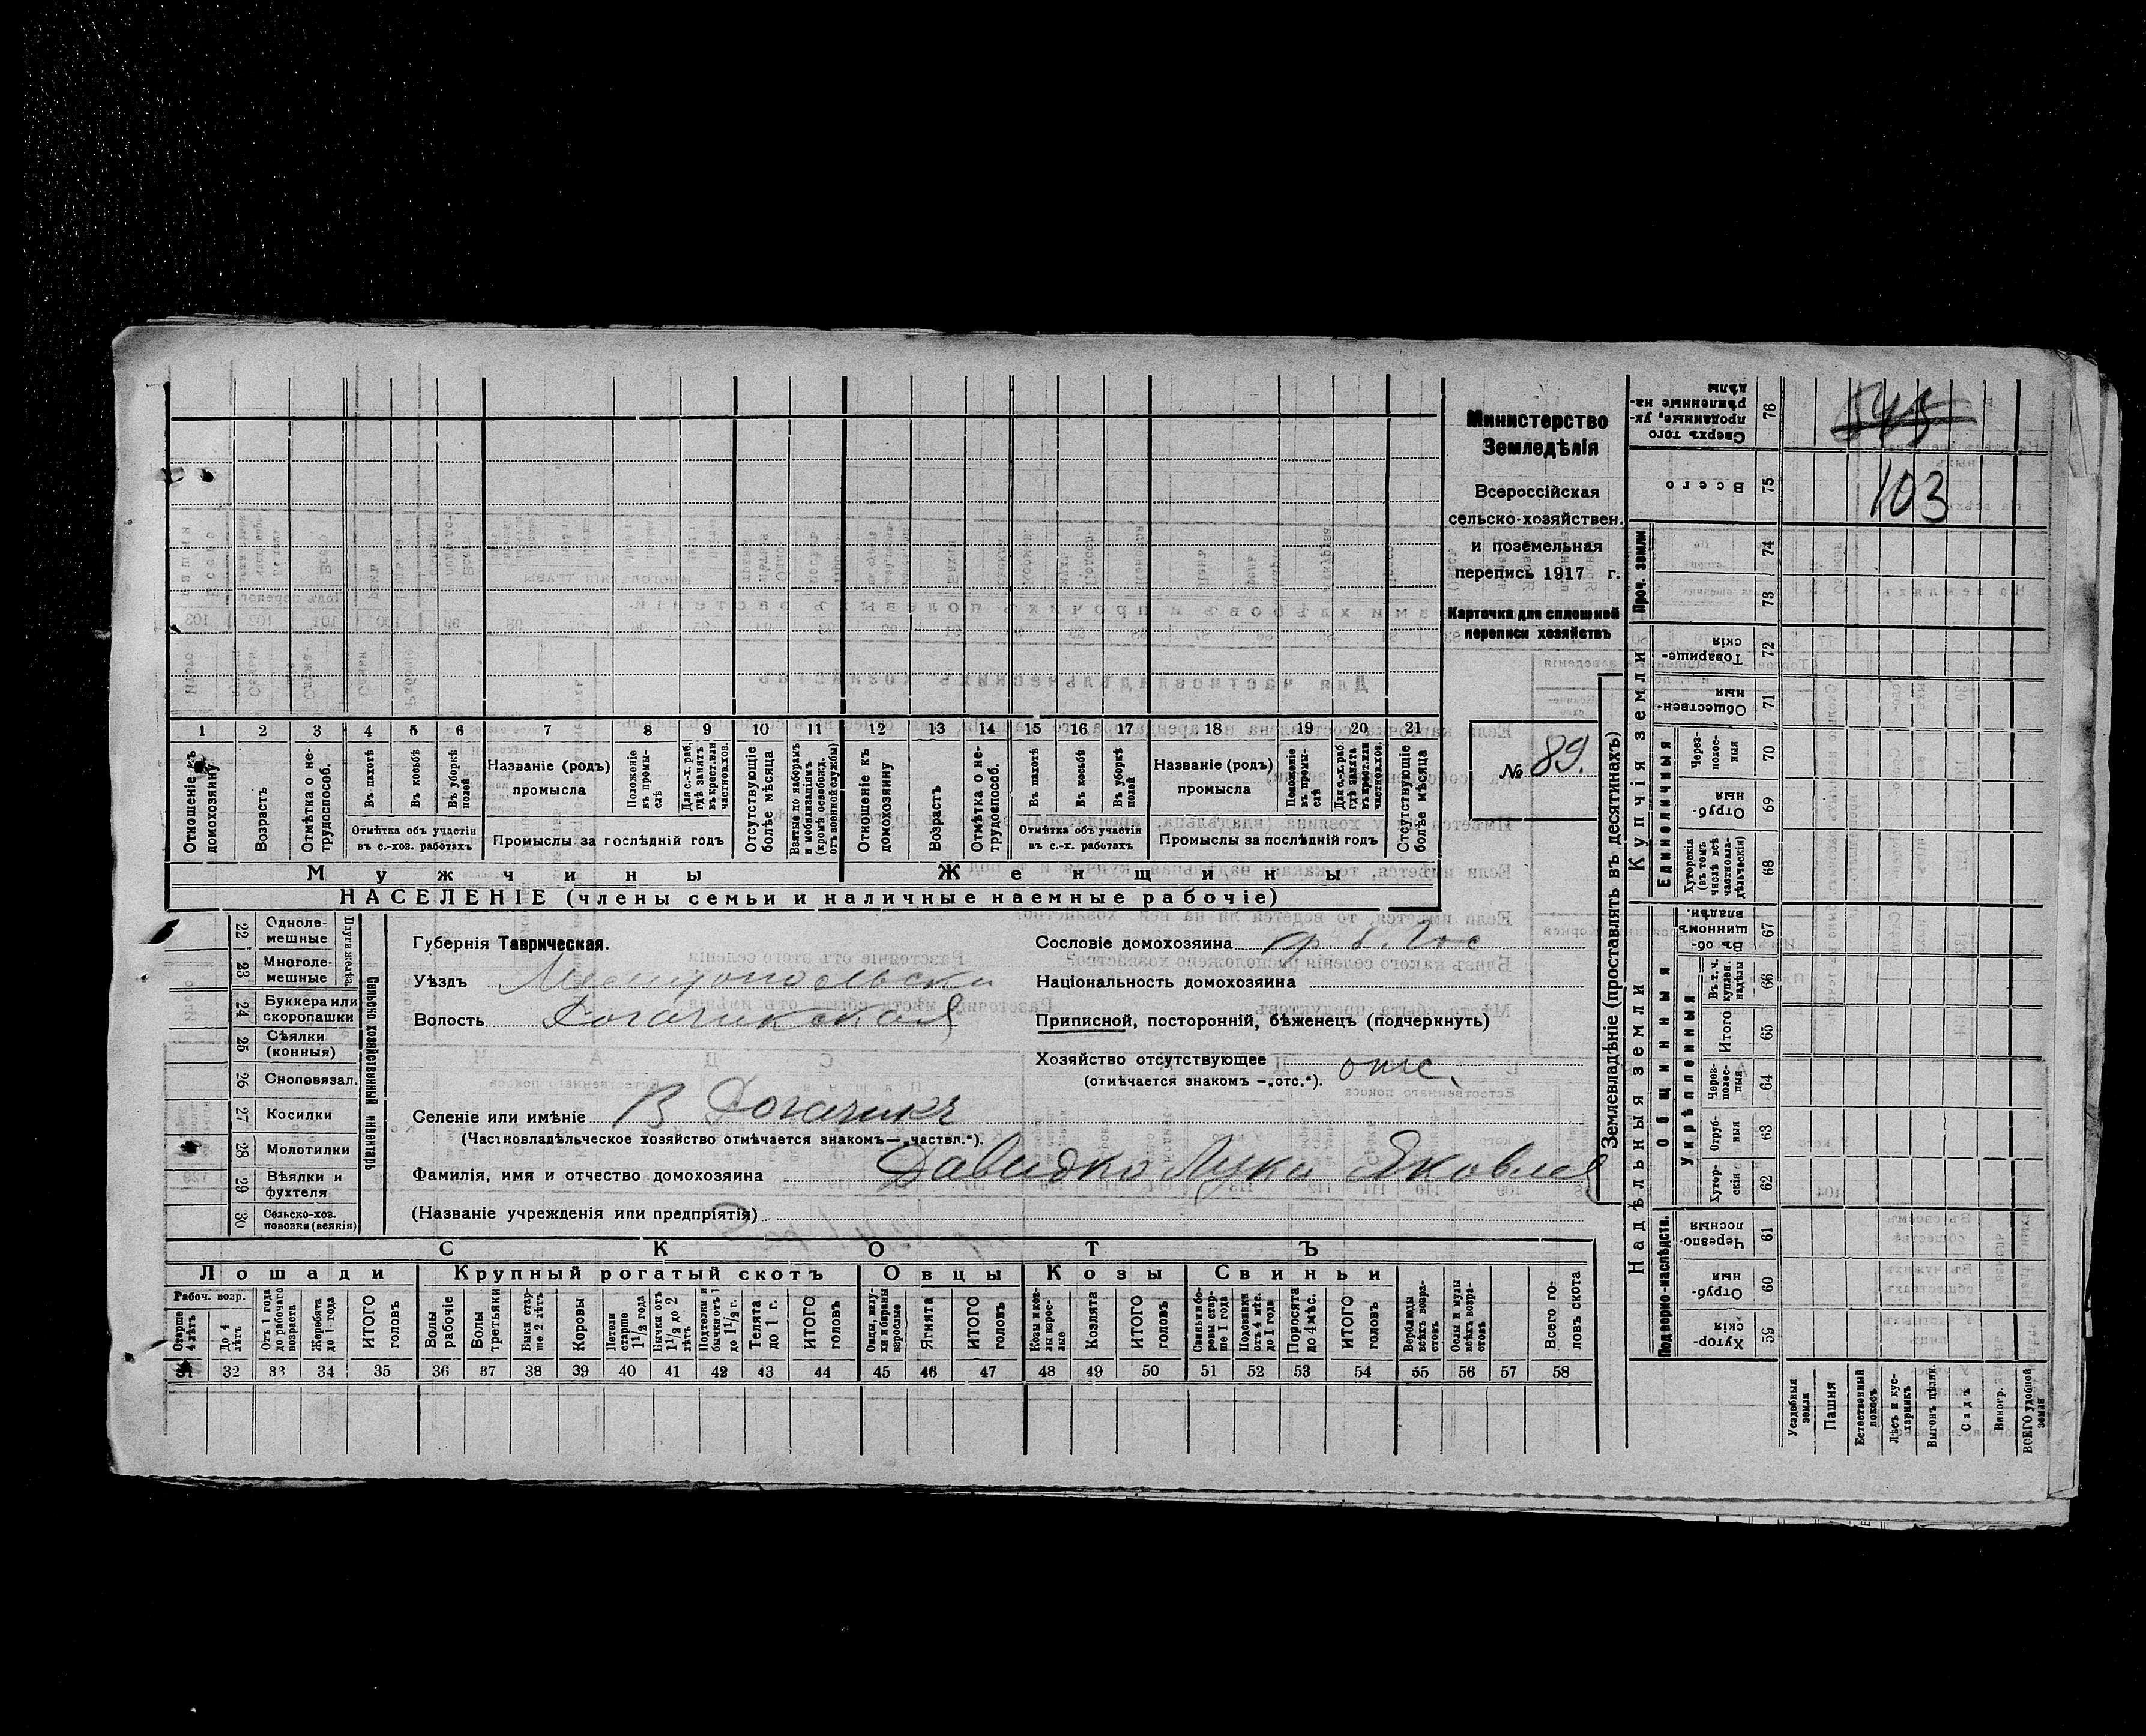 Министерство
Земледѣлія
Всероссійская
сельско-хозяйствен.
и поземельная
перепись 1917 г.
Карточка для сплошной
переписи хозяйствъ
№ 89.
545
103
1 2 3 4 5 6 7 8 9 10 11 12 13 14 15 16 17 18 19 20 21
Отношеніе къ домохозяину
Возрастъ
Отмѣтка о нетрудоспособ.
Въ пахотѣ
Въ косьбѣ
Въ уборкѣ полей
Отмѣтка объ участіи
въ с.-хоз. работахъ
Названіе (родъ)
промысла
Положеніе въ промыслѣ
Для с.-х. раб. гдѣ занятъ въ крест. или частнов. хоз.
Промыслы за послѣдній годъ
Отсутствующіе болѣе мѣсяца
Взятые по наборамъ и мобилизаціямъ (кромѣ освобожд. отъ военной службы)
Отношеніе къ домохозяину
Возрастъ
Отмѣтка о нетрудоспособ.
Въ пахотѣ
Въ косьбѣ
Въ уборкѣ полей
Отмѣтка объ участіи
въ с.-х. работахъ
Названіе (родъ)
промысла
Положеніе въ промыслѣ
Для с.-х. раб. гдѣ занята въ крест. или частнов. хоз.
Промыслы за послѣдній годъ
Отсутствующіе болѣе мѣсяца
Мужчины Женщины
НАСЕЛЕНІЕ (члены семьи и наличные наемные рабочіе)
Сельско-хозяйственный инвентарь
Плуги желѣз.
22 Одноле-
мешные
23 Многоле-
мешные
24 Буккера или
скоропашки
25 Сѣялки
(конныя)
26 Сноповязал.
27 Косилки
28 Молотилки
29 Вѣялки и
фухтеля
30 Сельско-хоз.
повозки (всякія)
Губернія Таврическая.
Уѣздъ Мелитопольски
Волость Рогачикская
Селеніе или имѣніе В Рогачикъ
(Частновладѣльческое хозяйство отмѣчается знакомъ—„частвл.“).
Фамилія, имя и отчество домохозяина Давидко Лука Яковлев
(Названіе учрежденія или предпріятія)
Сословіе домохозяина
Національность домохозяина
Приписной, посторонній, бѣженецъ (подчеркнуть)
Хозяйство отсутствующее отс.
(отмѣчается знакомъ —„отс.“).
СКОТЪ
Лошади Крупный рогатый скотъ Овцы Козы Свиньи
Рабоч. возр.
Старше 4 лѣтъ
До 4 лѣтъ
Отъ 1 года до рабочаго возраста
Жеребята до 1 года
ИТОГО головъ
Волы рабочіе
Волы третьяки
Быки старше 2 лѣтъ
Коровы
Нетели старше 1½ года
Бычки отъ 1½ до 2 лѣтъ
Подтелки и бычки отъ 1 до 1½ г.
Телята до 1 г.
ИТОГО головъ
Овцы, валухи и бараны взрослые
Ягнята
ИТОГО головъ
Козы и козлы взрослые
Козлята
ИТОГО головъ
Свиньи и боровы старше 1 года
Подсвинки отъ 4 мѣс. до 1 года
Поросята до 4 мѣс.
ИТОГО головъ
Верблюды всѣхъ возрастовъ
Ослы и мулы всѣхъ возрастовъ
Всего головъ скота
31 32 33 34 35 36 37 38 39 40 41 42 43 44 45 46 47 48 49 50 51 52 53 54 55 56 57 58
Землевладѣніе (проставлять въ десятинахъ)
Надѣльныя земли
Купчія земли
Проч. земли
Подворно-наслѣдств.
Общинныя
Укрѣпленныя
Единоличныя
Сверхъ того проданные, укрѣпленные надѣлы 76
Всего 75
74
73
Товарищескія 72
Общественныя 71
Черезполосныя 70
Отрубныя 69
Хуторскія (въ томъ числѣ всѣ частновладѣльческія) 68
Въ общинномъ владѣн. 67
Въ т. ч. куплен. надѣлы 66
Итого 65
Черезполосныя 64
Отрубныя 63
Хуторскія 62
Черезполосныя 61
Отрубныя 60
Хуторскія 59
Усадебныя земли
Пашня
Естественный покосъ
Лѣсъ и кустарникъ
Выгонъ цѣлин.
Садъ
Виногр.
ВСЕГО удобной земли